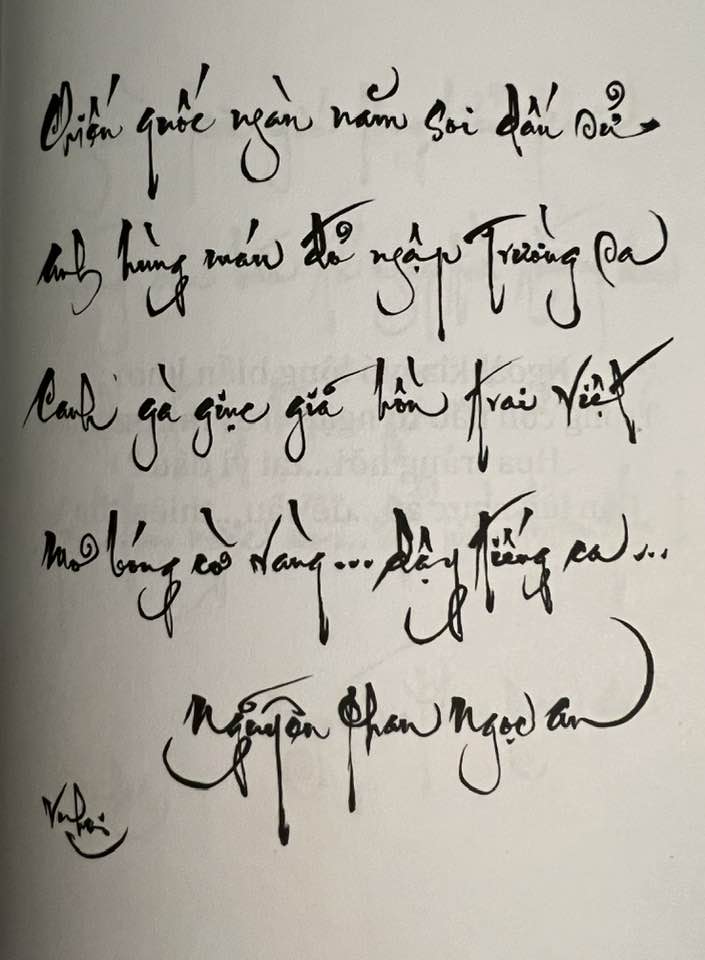 Chiến quốc ngàn năm soi dấu sử
Anh hùng máu đỏ ngập Trường Sa
Canh gà giục giã hồn trai Việt
Mơ bóng cờ vàng... dậy tiếng ca...
Nguyễn Phan Ngọc An
Vũ Hối